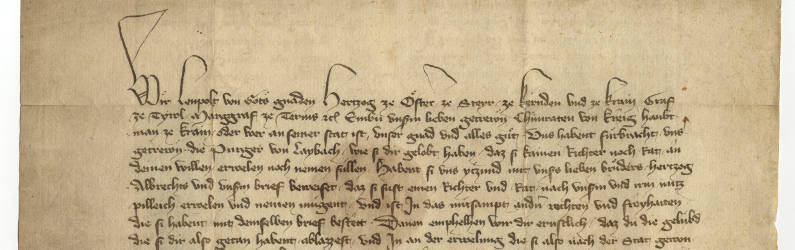 Wir Leupolt von Gots gnaden Hertzog ze Öster ze Steyr ze kernden und ze krain Graf
ze Tyrol Marggraf ze Teruis etc Embieten unserm lieben getrewn Chunraten von kreig haubt
man ze krain oder wer an seiner stat ist, unser gnad und alles gut. Uns habent furbracht uns
getrewn die Purger von Laybach, wie si dir gelobt haben, daz si kainen Richter noch Rat an
deinen willen erwelen noch nemen sullen. Habent si uns yczund mit unsers lieben bruders hertzog
Albrechts und unserm brief beweiset, daz si sust einen Richter und Rat nach unserm und irm nutz
pilleich erwelen und nemen mugent, und ist In das mitsampt andern rechten und freyhaiten
die si habent mit demselben brief bestett. Dauon emphelhen wir dir ernstlich, daz du die gelubd
die si dir also getan habent ablazzest, und In an der erwelung die si also nach der Stat gewon